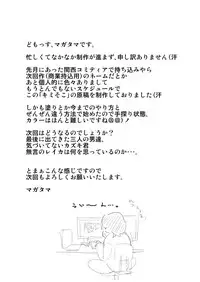 どもっす、マガタマです。
忙しくてなかなか制作が進まず、申し訳ありません(汗
先月にあった関西コミティアで持ち込みやら
次回作(商業持込用)のネームだとか
あと個人的に色々ありまして
もうとんでもないスケジュールで
この「キミそこ」の原稿を制作しておりました(汗
しかも塗りとか今までのやり方と
ぜんぜん違う方法で始めたので手探り状態、
カラーはほんと難しいですね
次回はどうなるのでしょうか?
最後に出てきた三人の男達、
気づいてないカズキ君
無言のレイカは何を思っているのか…、
とまぁこんな感じですので
次回もよろしくお願いいたします。
マガタマ